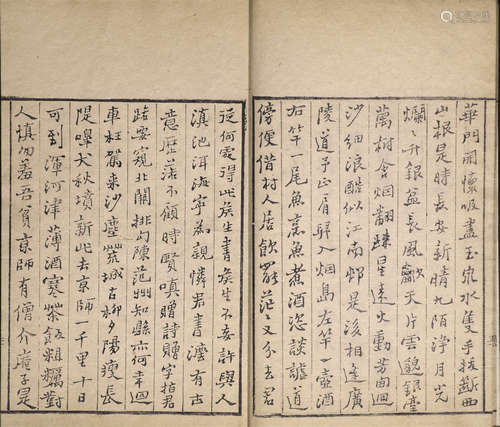 華門開懷吸盡玉泉水隻手拔斷西
山根是時長安新晴九陌淨月光
爛爛升銀盆長風歘天片雲魄銀臺
萬樹含烟翻疎星遠火動芳甸迴
沙細浪酷似江南邨是後相逢廣
陵道予正肩舁入烟島左竿一壺酒
右竿一尾魚烹魚煮酒恣談謔道
傍便借村人居飲罷茫茫又分去君
從何處得此矦生書矦生不妄許與人
滇池洱海寧為親憐君書濶有古
意歷落不顧時賢嗔贈詩贈字指君
路要窺北闕排勾陳范州知縣亦何幸迴
車枉駕来沙塵荒城古柳夕陽瘦長
隄嘷犬秋墳新此去京師一千里十日
可到渾河津薄酒寒茶飯粗糲對
人慎勿羞吾貧京師有僧介庵子是